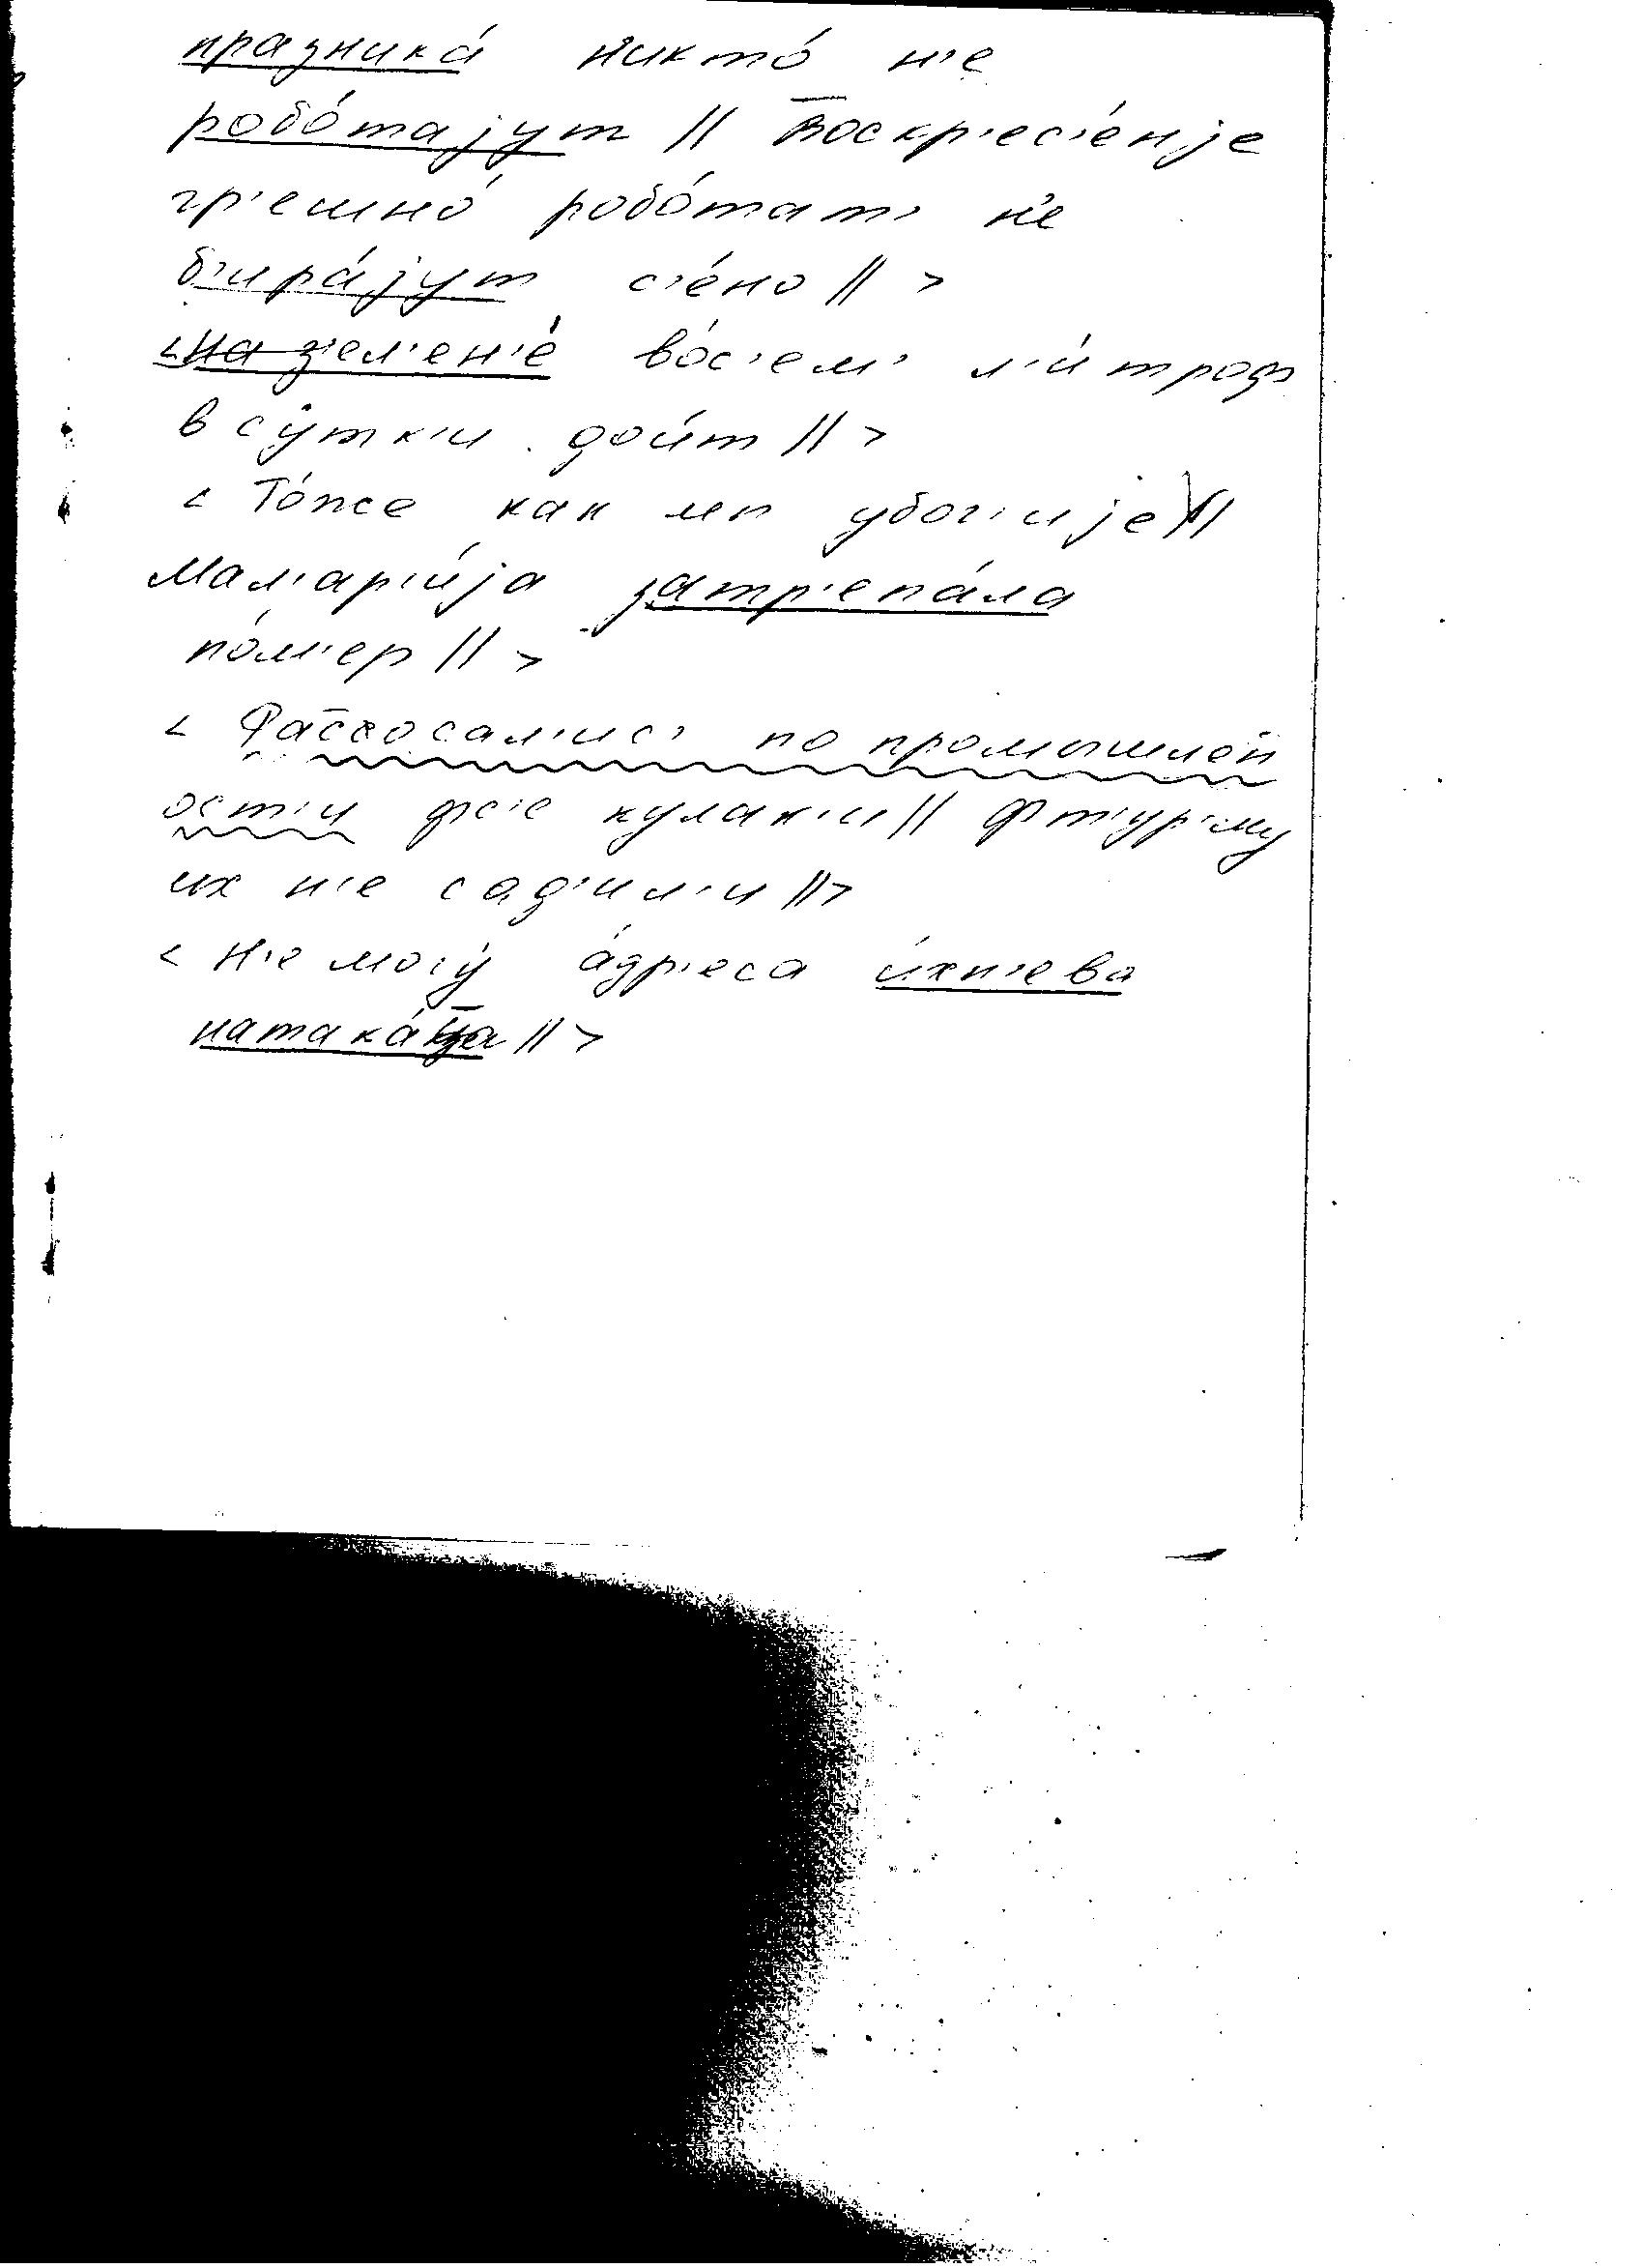 празника́ никто́ н'е
робо́тајут || Воскр'ес'е́нје
гр'ешно́ робо́тат' н'е
б'ира́јут с'е́но || >
<на з'ел'ен'е́ во́с'ем' л'и́троф
в су́тк'и дои́т || >
< То́же как мы убог'ије ||
Мал'ар'и́ја затр'епа́ла
по́м'ер || >
< Рассосал'ис' по промышлен
ост'и фс'е кулак'и || Фт'ур'му
их н'е сад'ил'и || >
< Н'е могу́ а́др'еса и́хн'ева
натака́ца || >